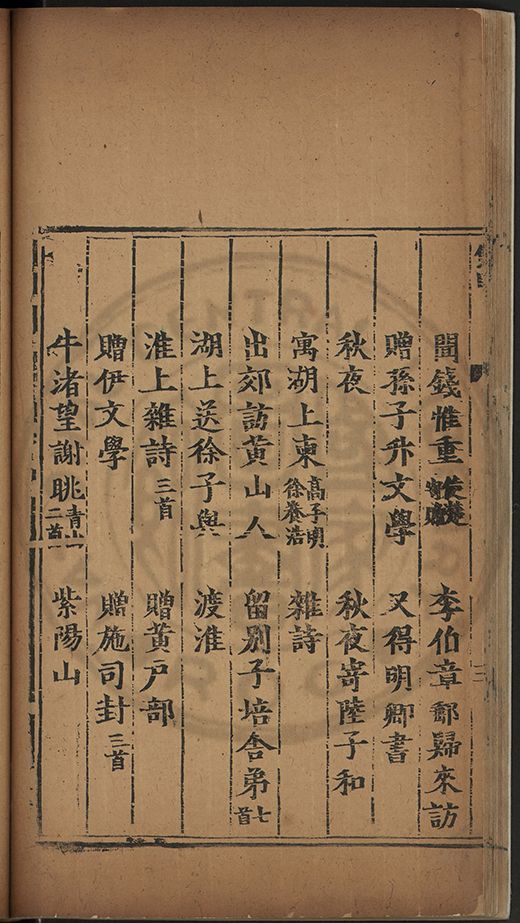 聞錢惟重使楚寄贈　李伯章郵歸來訪
贈孫子升文學　又得明卿書
秋夜　秋夜寄陸子和
寓湖上柬高子明徐養浩　雜詩
出郊訪黃山人　留別子培舍弟七首
湖上送徐子與　渡淮
淮上雜詩三首　贈黃戶部
贈伊文學　贈施司封三首
牛渚望謝眺青山二首　紫陽山
三